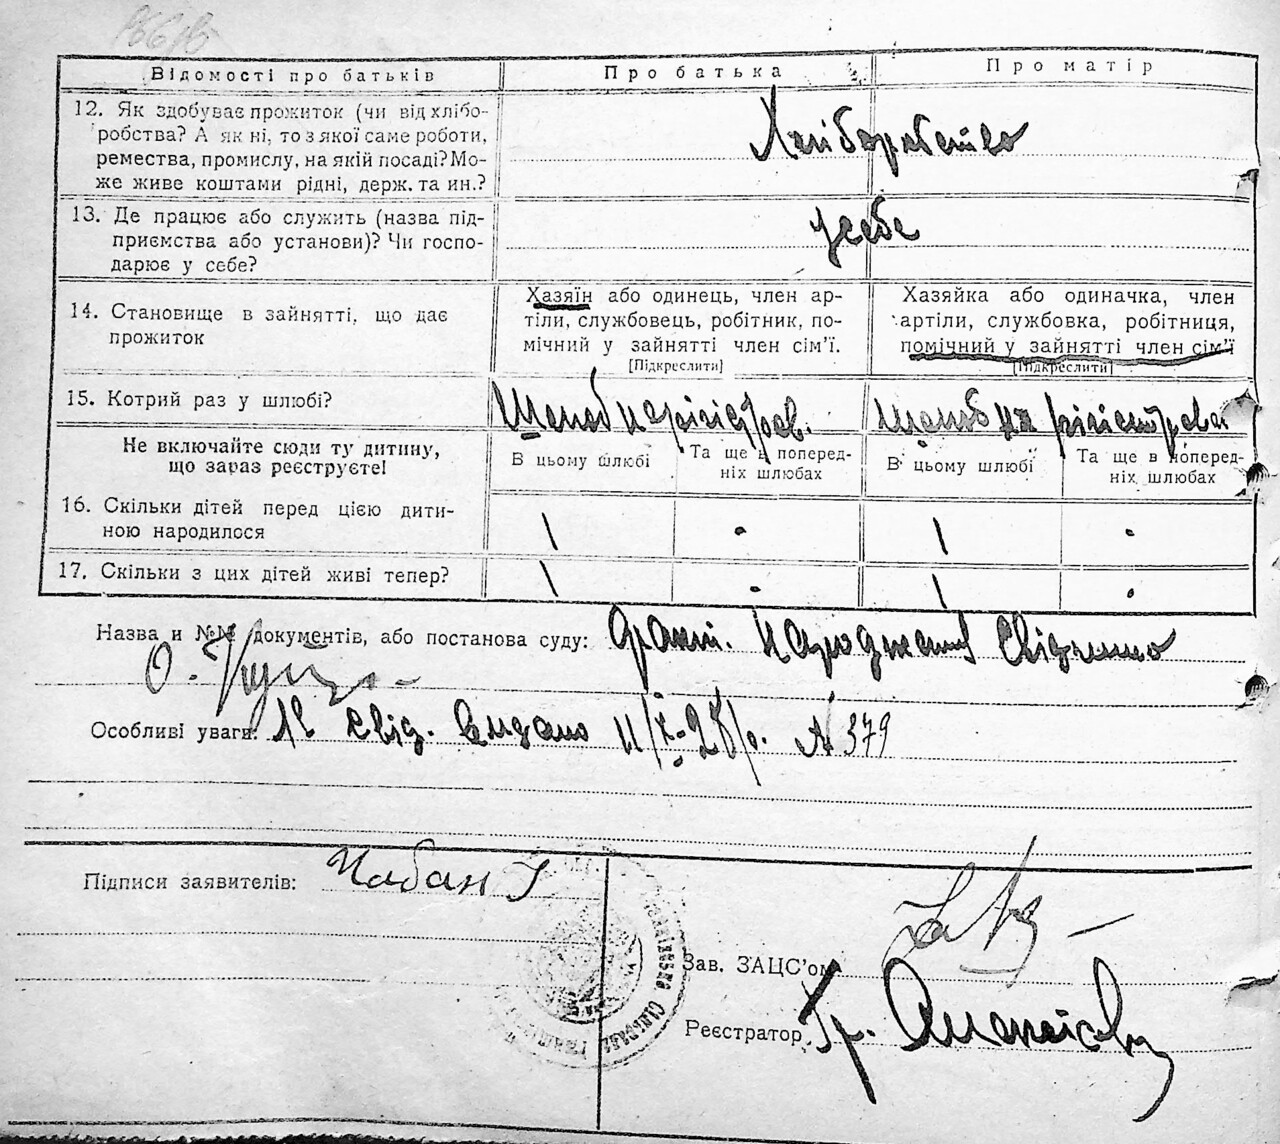 Відомості про батьків
Про батька
Про матір
12. Як здобуває прожиток (чи від хлібо-
робства? А як ні, то з якої саме роботи,
ремества, промислу, на якій посаді? Мо-
же живе коштами рідні, держ. та ин.?
Хліборобство
13. Де працює або служить (назва під-
приємства або установи)? Чи госпо-
дарює у себе?
у себе
14. Становище в зайнятті, що дає
прожиток
Хазяїн або одинець, член ар-
тіли, службовець, робітник, по-
мічний у зайнятті член сім'ї.
[Підкреслити]
Хазяйка або одиначка, член
артіли, службовка, робітниця,
помічний у зайнятті член сім'ї
[Підкреслити]
15. Котрий раз у шлюбі?
Шлюб
Шлюб
Не включайте сюди ту дитину,
що зараз реєструєте!
В цьому шлюбі
Та ще в поперед-
ніх шлюбах
В цьому шлюбі
Та ще в поперед-
ніх шлюбах
16. Скільки дітей перед цією дити-
ною народилося
17. Скільки з цих дітей живі тепер?
Назва и №№ документів, або постанова суду:
Особливі уваги: свід. видано 379
Підписи заявителів: Чабан І
Зав. ЗАЦС'ом
Реєстратор Гр.